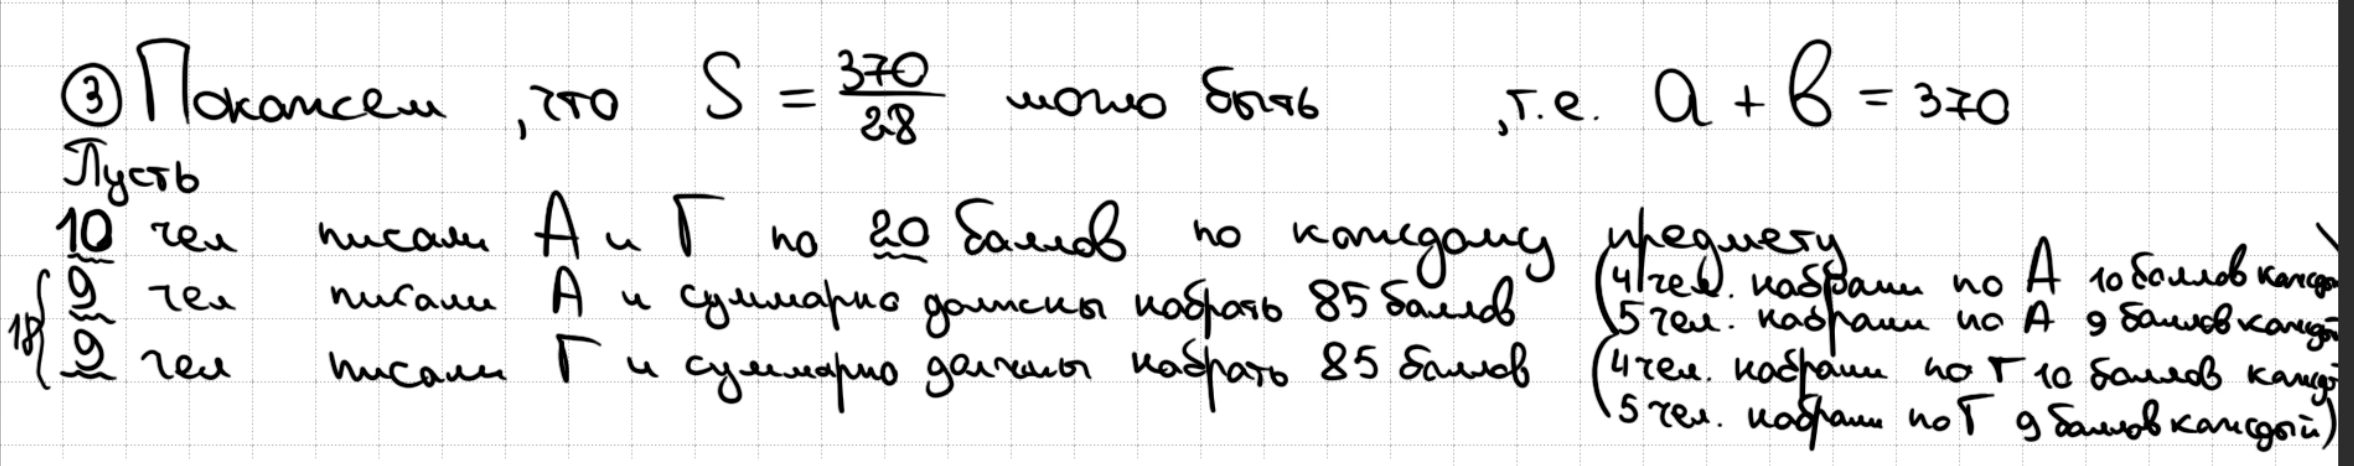 ③ Покажем, что S = 370/28 могло быть, т.е. a + b = 370
Пусть
10 чел писали А и Г по 20 баллов по каждому предмету
(4 чел. набрали по А 10 баллов кажд
9 чел писали А и суммарно должны набрать 85 баллов
5 чел. набрали по А 9 баллов кажд
18{
9 чел писали Г и суммарно должны набрать 85 баллов
(4 чел. набрали по Г 10 баллов кажд
5 чел. набрали по Г 9 баллов каждый)